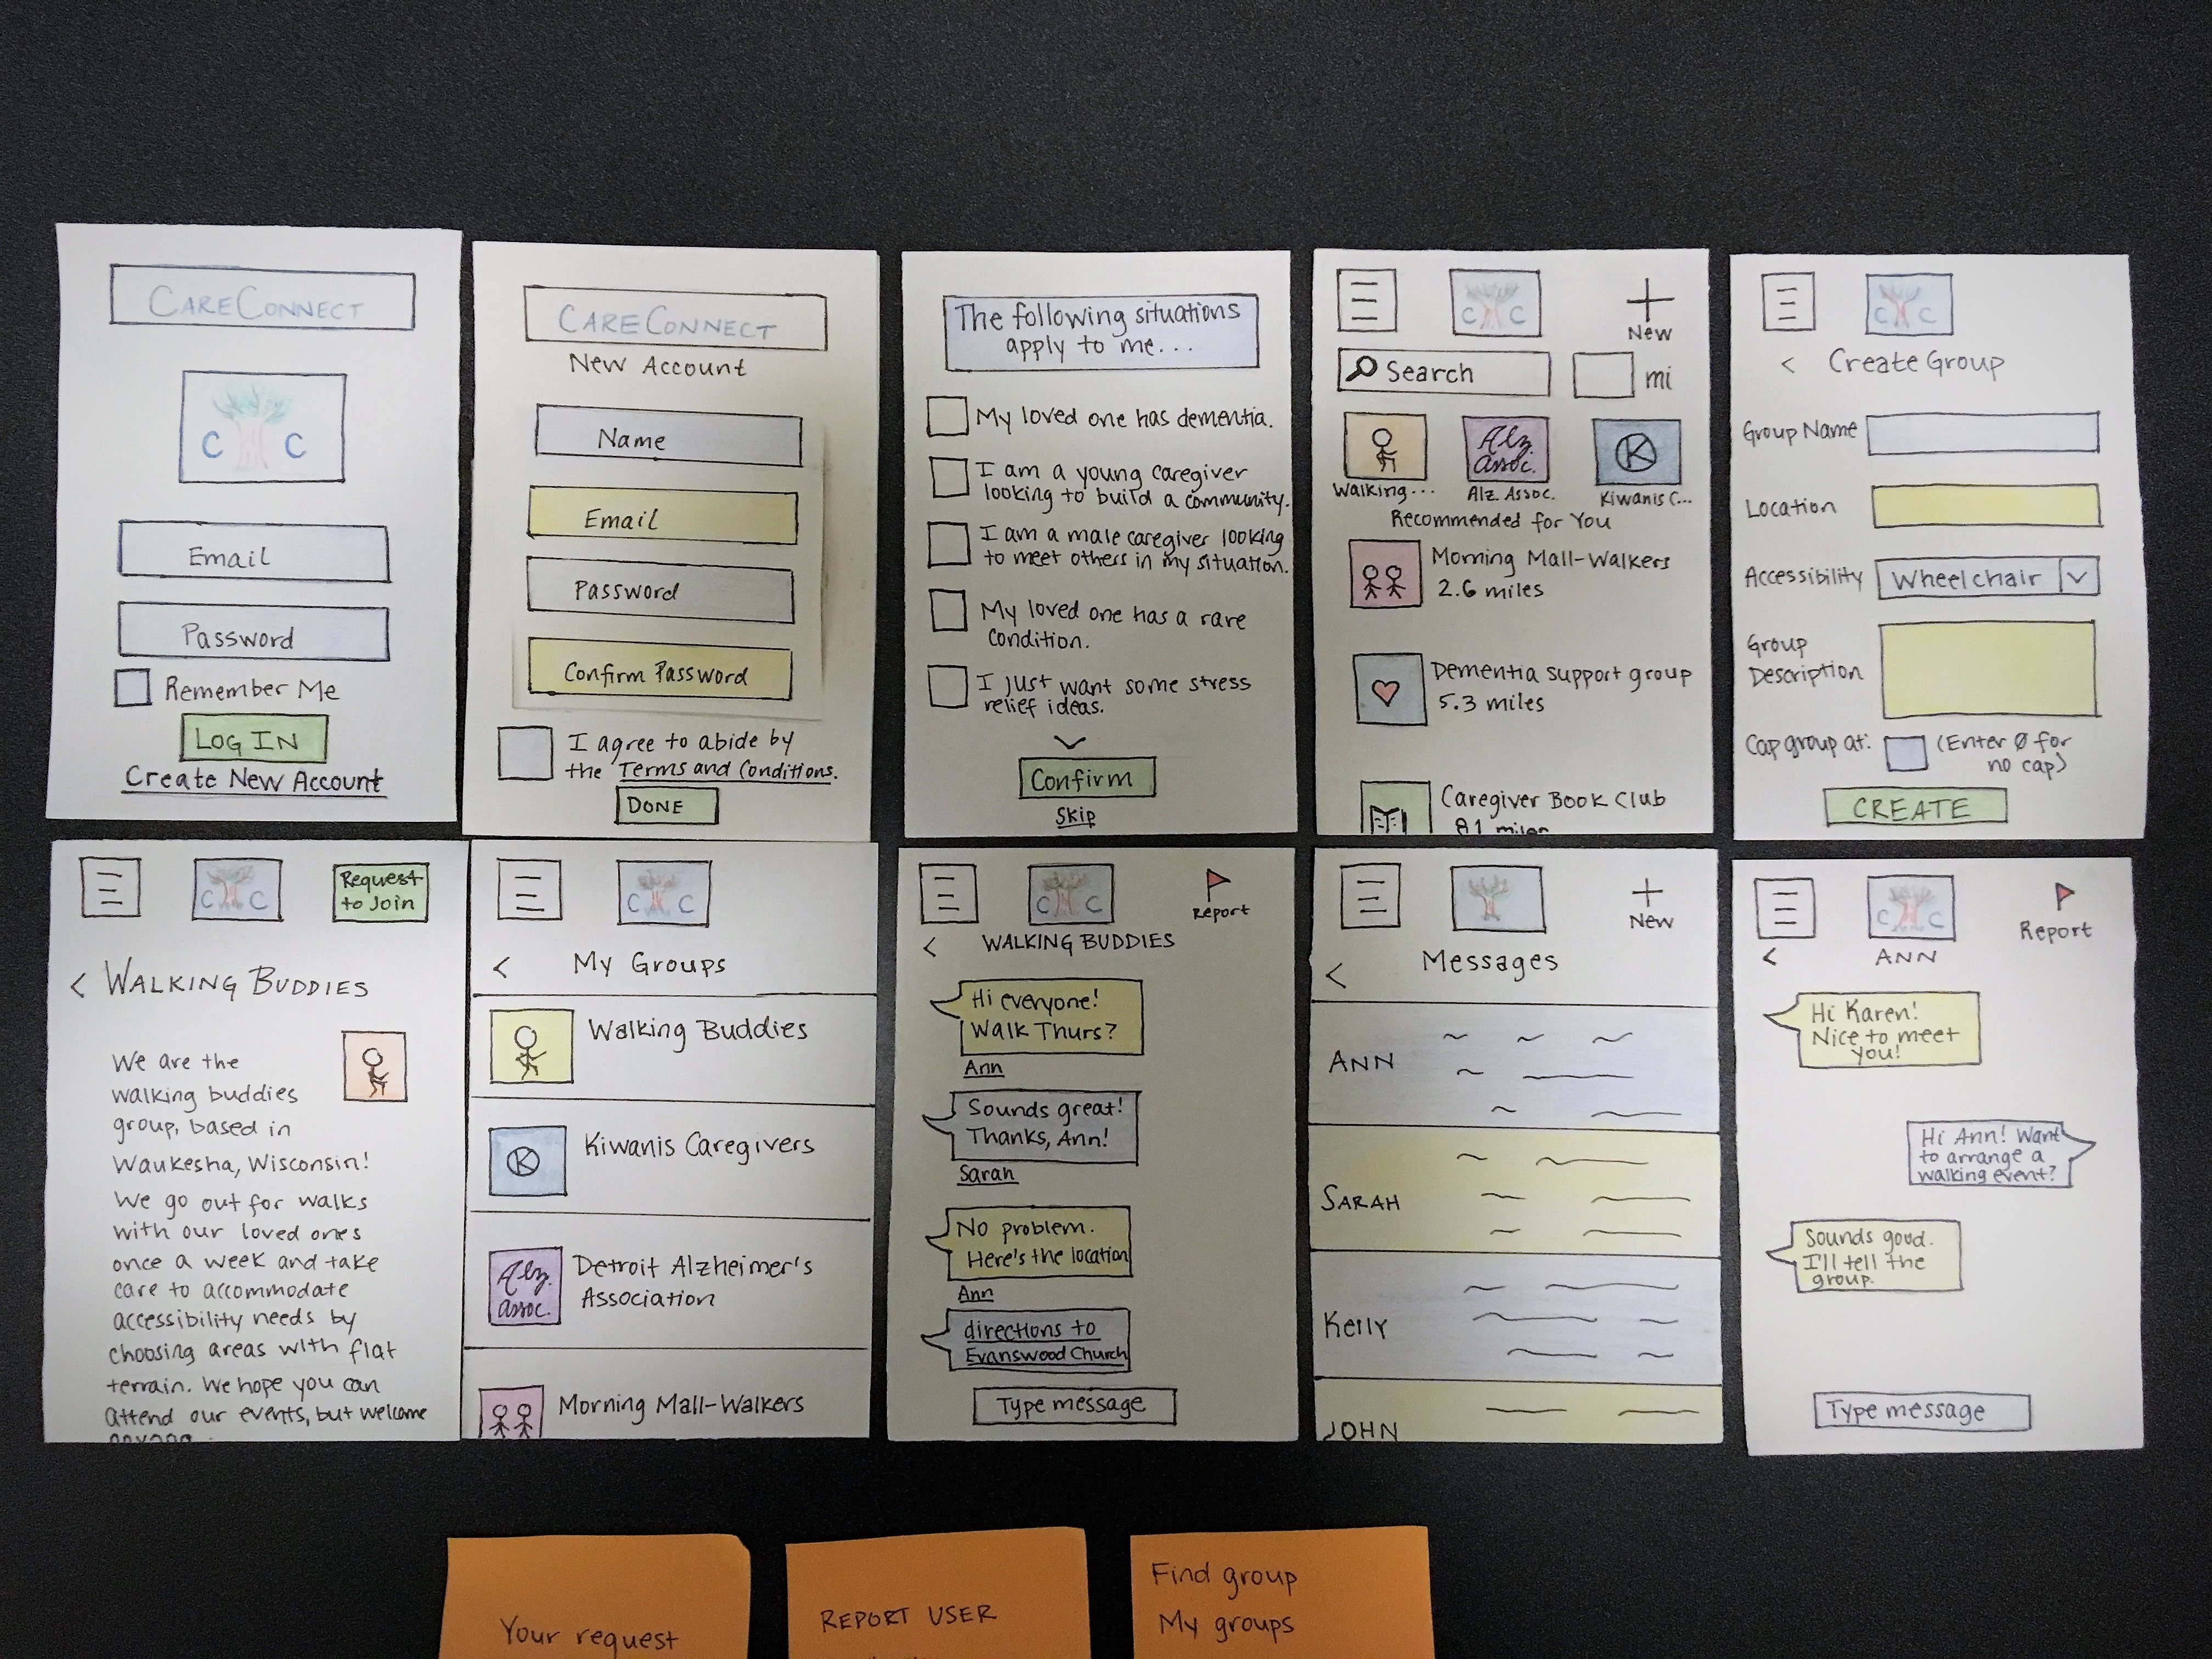 CARECONNECT
C C
Email
Password
Remember Me
LOG IN
Create New Account
CARECONNECT
New Account
Name
Email
Password
Confirm Password
I agree to abide by
the Terms and Conditions.
DONE
The following situations
apply to me...
My loved one has dementia.
I am a young caregiver
looking to build a community.
I am a male caregiver looking
to meet others in my situation.
My loved one has a rare
condition.
I just want some stress
relief ideas.
Confirm
Skip
C C
New
Search
mi
Alz.
assoc.
K
Walking...
Alz. Assoc.
Kiwanis C...
Recommended for You
Morning Mall-Walkers
2.6 miles
Dementia support group
5.3 miles
Caregiver Book Club
8.1 miles
C C
< Create Group
Group Name
Location
Accessibility
Wheelchair
Group
Description
Cap group at:
(Enter 0 for
no cap)
CREATE
C C
Request
to Join
< WALKING BUDDIES
We are the
walking buddies
group, based in
Waukesha, Wisconsin!
We go out for walks
with our loved ones
once a week and take
care to accommodate
accessibility needs by
choosing areas with flat
terrain. We hope you can
attend our events, but welcome
C C
< My Groups
Walking Buddies
K
Kiwanis Caregivers
Alz.
assoc.
Detroit Alzheimer's
Association
Morning Mall-Walkers
C C
Report
< WALKING BUDDIES
Hi everyone!
Walk Thurs?
Ann
Sounds great!
Thanks, Ann!
Sarah
No problem.
Here's the location
Ann
directions to
Evanswood Church
Type message
New
< Messages
ANN
SARAH
Kelly
JOHN
C C
Report
< ANN
Hi Karen!
Nice to meet
you!
Hi Ann! Want
to arrange a
walking event?
Sounds good.
I'll tell the
group.
Type message
Your request
REPORT USER
Find group
My groups